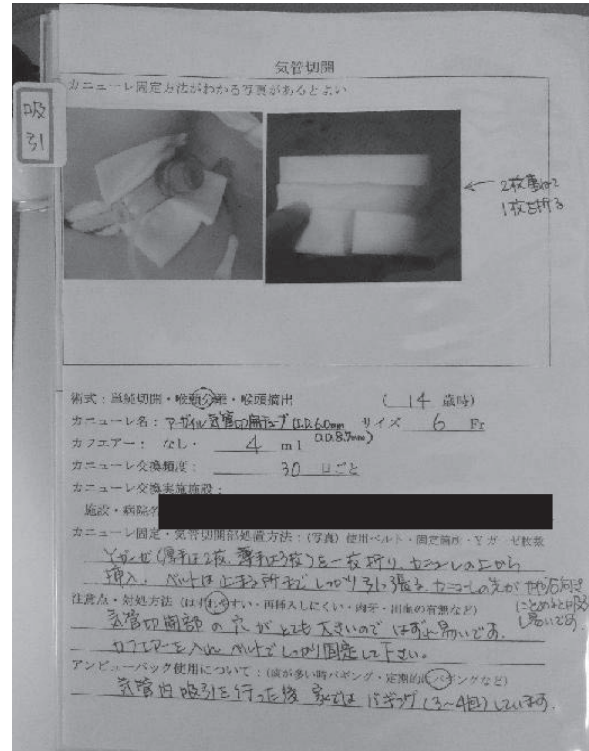 気管切開
カニューレ固定方法がわかる写真があるとよい
吸引
2枚重ねて
1枚を折る
術式：単純切開・喉頭分離・喉頭摘出 （ 14 歳時）
カニューレ名：アーガイル気管切開チューブ (I.D.6.0mm O.D.8.7mm) サイズ 6 Fr
カフエアー： なし・ 4 ml
カニューレ交換頻度： 30 日ごと
カニューレ交換実施施設：
施設・病院名
カニューレ固定・気管切開部処置方法：(写真) 使用ベルト・固定箇所・Yガーゼ枚数
Yガーゼ(厚手は2枚、薄手は3枚)を一枚折り、カニューレの上から
挿入。ベルトは止まる所までしっかり引っ張る。カニューレの先が
注意点・対処方法（はずれやすい・再挿入しにくい・肉芽・出血の有無など）
気管切開部の穴がとても大きいのではずれ易いです。
カフエアーを入れ ベルトでしっかり固定して下さい。
アンビューバック使用について：(痰が多い時バギング・定期的にバギングなど)
気管内吸引を行った後 家では バギング(3〜4回)しています。